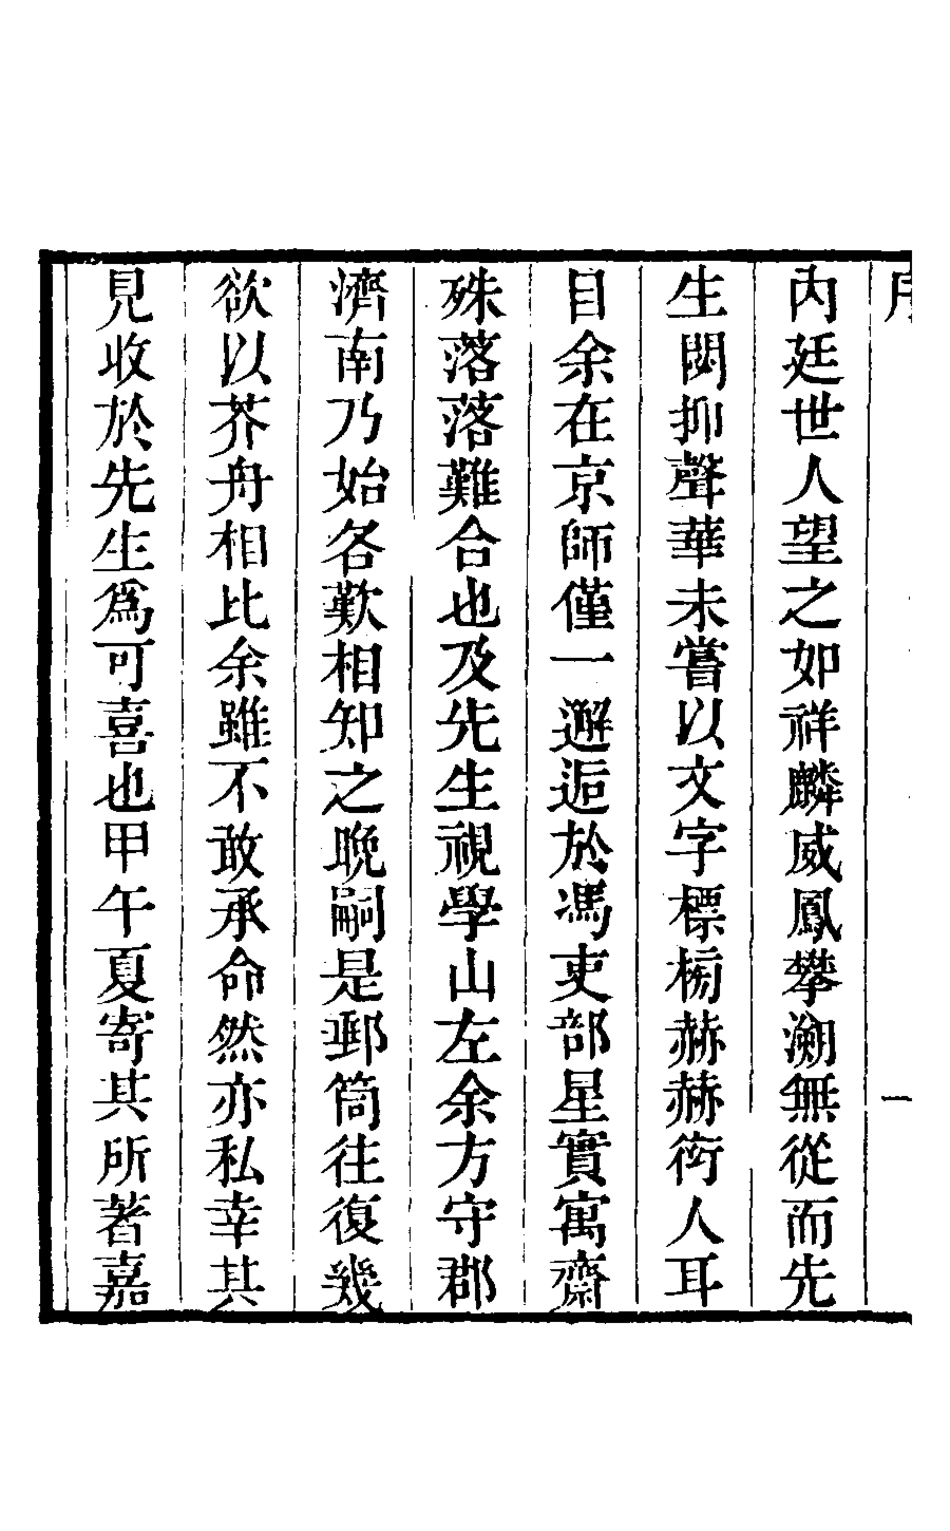 序 一
內廷世人望之如祥麟威鳳攀溯無從而先
生閟抑聲華未嘗以文字標榜赫赫衒人耳
目余在京師僅一邂逅於馮吏部星實寓齋
殊落落難合也及先生視學山左余方守郡
濟南乃始各歎相知之晚嗣是郵筒往復幾
欲以芥舟相比余雖不敢承命然亦私幸其
見收於先生爲可喜也甲午夏寄其所著嘉